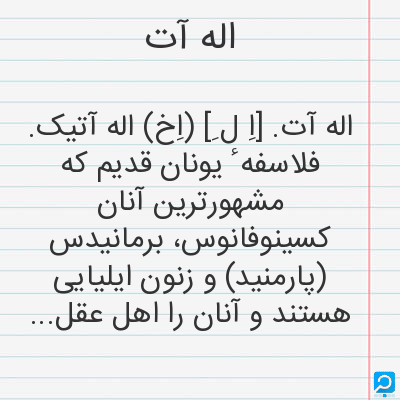 اله آت
اله آت. [اِ ل ِ] (اِخ) اله آتیک.
فلاسفه ٔ یونان قدیم که
مشهورترین آنان
کسینوفانوس، برمانیدس
(پارمنید) و زنون ایلیایی
هستند و آنان را اهل عقل...